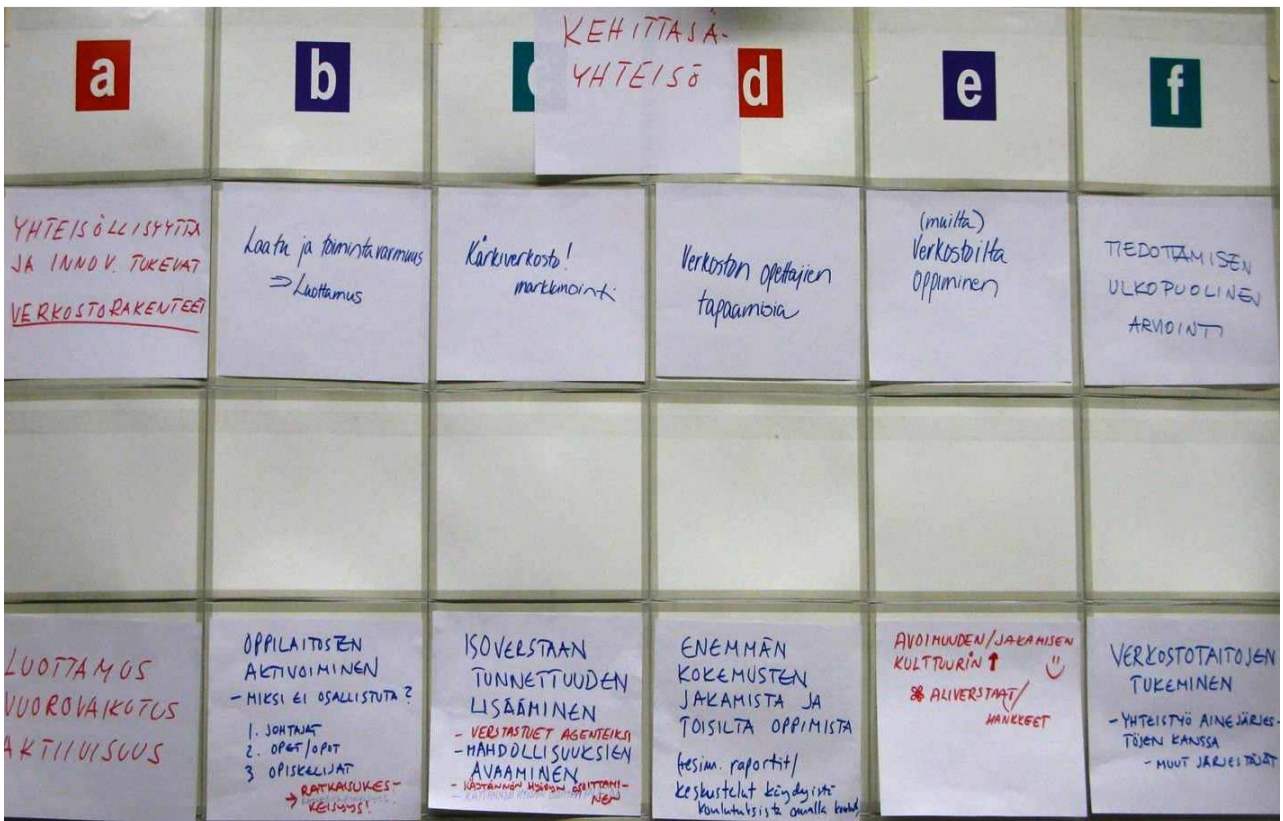 KEHITTÄJÄ-
YHTEISÖ
a
b
d
e
f
YHTEISÖLLISYYTTÄ
JA INNOV. TUKEVAT
VERKOSTORAKENTEET
Laatu ja toimintavarmuus
⇒ Luottamus
Kärkiverkosto!
markkinointi
Verkoston opettajien
tapaamisia
(muilta)
Verkostoilta
oppiminen
TIEDOTTAMISEN
ULKOPUOLINEN
ARVIOINTI
LUOTTAMUS
VUOROVAIKUTUS
AKTIIVISUUS
OPPILAITOSTEN
AKTIVOIMINEN
- MIKSI EI OSALLISTUTA?
1. JOHTAJAT
2. OPET/OPOT
3 OPISKELIJAT
→ RATKAISUKES-
KEISYYS!
ISOVERSTAAN
TUNNETTUUDEN
LISÄÄMINEN
- VERSTASTUET AGENTEIKSI
- MAHDOLLISUUKSIEN
AVAAMINEN
- KÄYTÄNNÖN HYÖDYN OSOITTAMI-
NEN
ENEMMÄN
KOKEMUSTEN
JAKAMISTA JA
TOISILTA OPPIMISTA
(esim. raportit/
keskustelut käydyistä
koulutuksista omalla
AVOIMUUDEN/JAKAMISEN
KULTTUURIN ↑
ALIVERSTAAT/
HANKKEET
VERKOSTOTAITOJEN
TUKEMINEN
- YHTEISTYÖ AINEJÄRJES-
TÖJEN KANSSA
- MUUT JÄRJESTÄJÄT